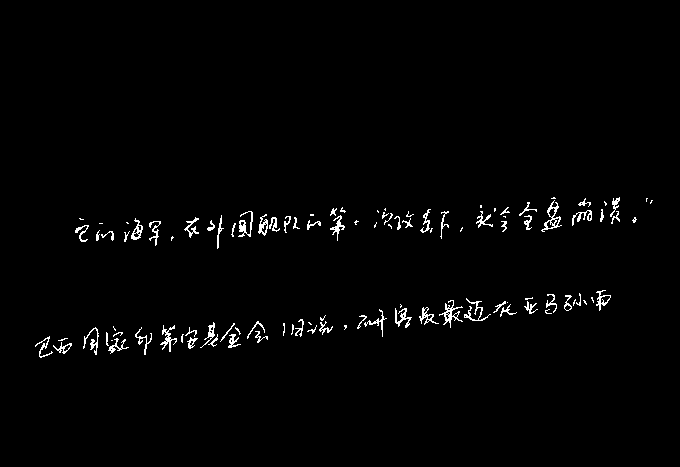 它的海军，在外国舰队的第一次攻击下，就会全盘崩溃。”
巴西国家印第安基金会1日说，研究员最近在亚马孙雨